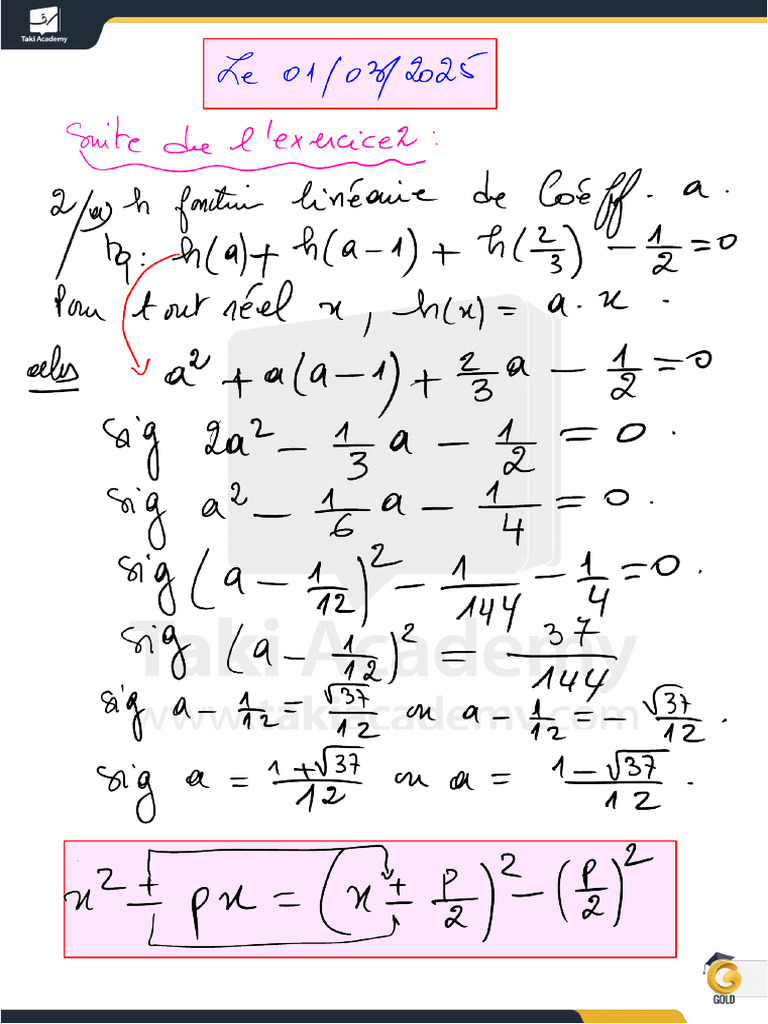 Taki Academy
Le 01/03/2025
Suite de l'exercice2 :
2/a) h fonction linéaire de Coéff. a.
Tq: h(a) + h(a-1) + h(2/3) - 1/2 = 0
Pour tout réel x, h(x) = a.x.
alors a² + a(a-1) + 2/3 a - 1/2 = 0
sig 2a² - 1/3 a - 1/2 = 0.
sig a² - 1/6 a - 1/4 = 0.
sig (a - 1/12)² - 1/144 - 1/4 = 0.
sig (a - 1/12)² = 37/144
sig a - 1/12 = √37/12 ou a - 1/12 = - √37/12.
sig a = 1+√37/12 ou a = 1-√37/12.
x² ± px = (x ± p/2)² - (p/2)²
Taki Academy
www.takiacademy.com
GOLD